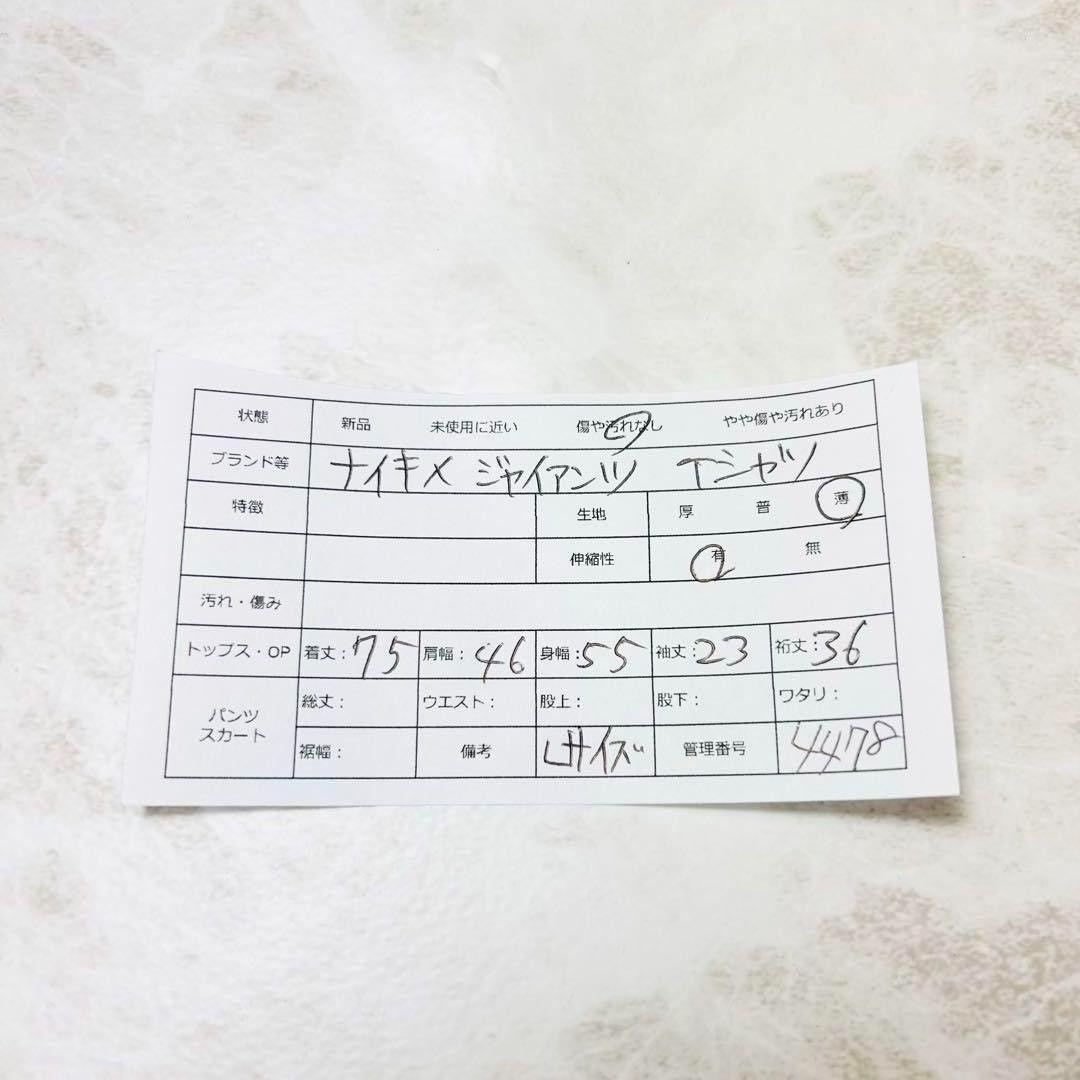 状態 新品 未使用に近い 傷や汚れなし やや傷や汚れあり
ブランド等 ナイキ× ジャイアンツ Tシャツ
特徴 生地 厚 普 薄
伸縮性 有 無
汚れ・傷み
トップス・OP 着丈：75 肩幅：46 身幅：55 袖丈：23 裄丈：36
パンツ スカート 総丈： ウエスト： 股上： 股下： ワタリ：
裾幅： 備考 Lサイズ 管理番号 4478